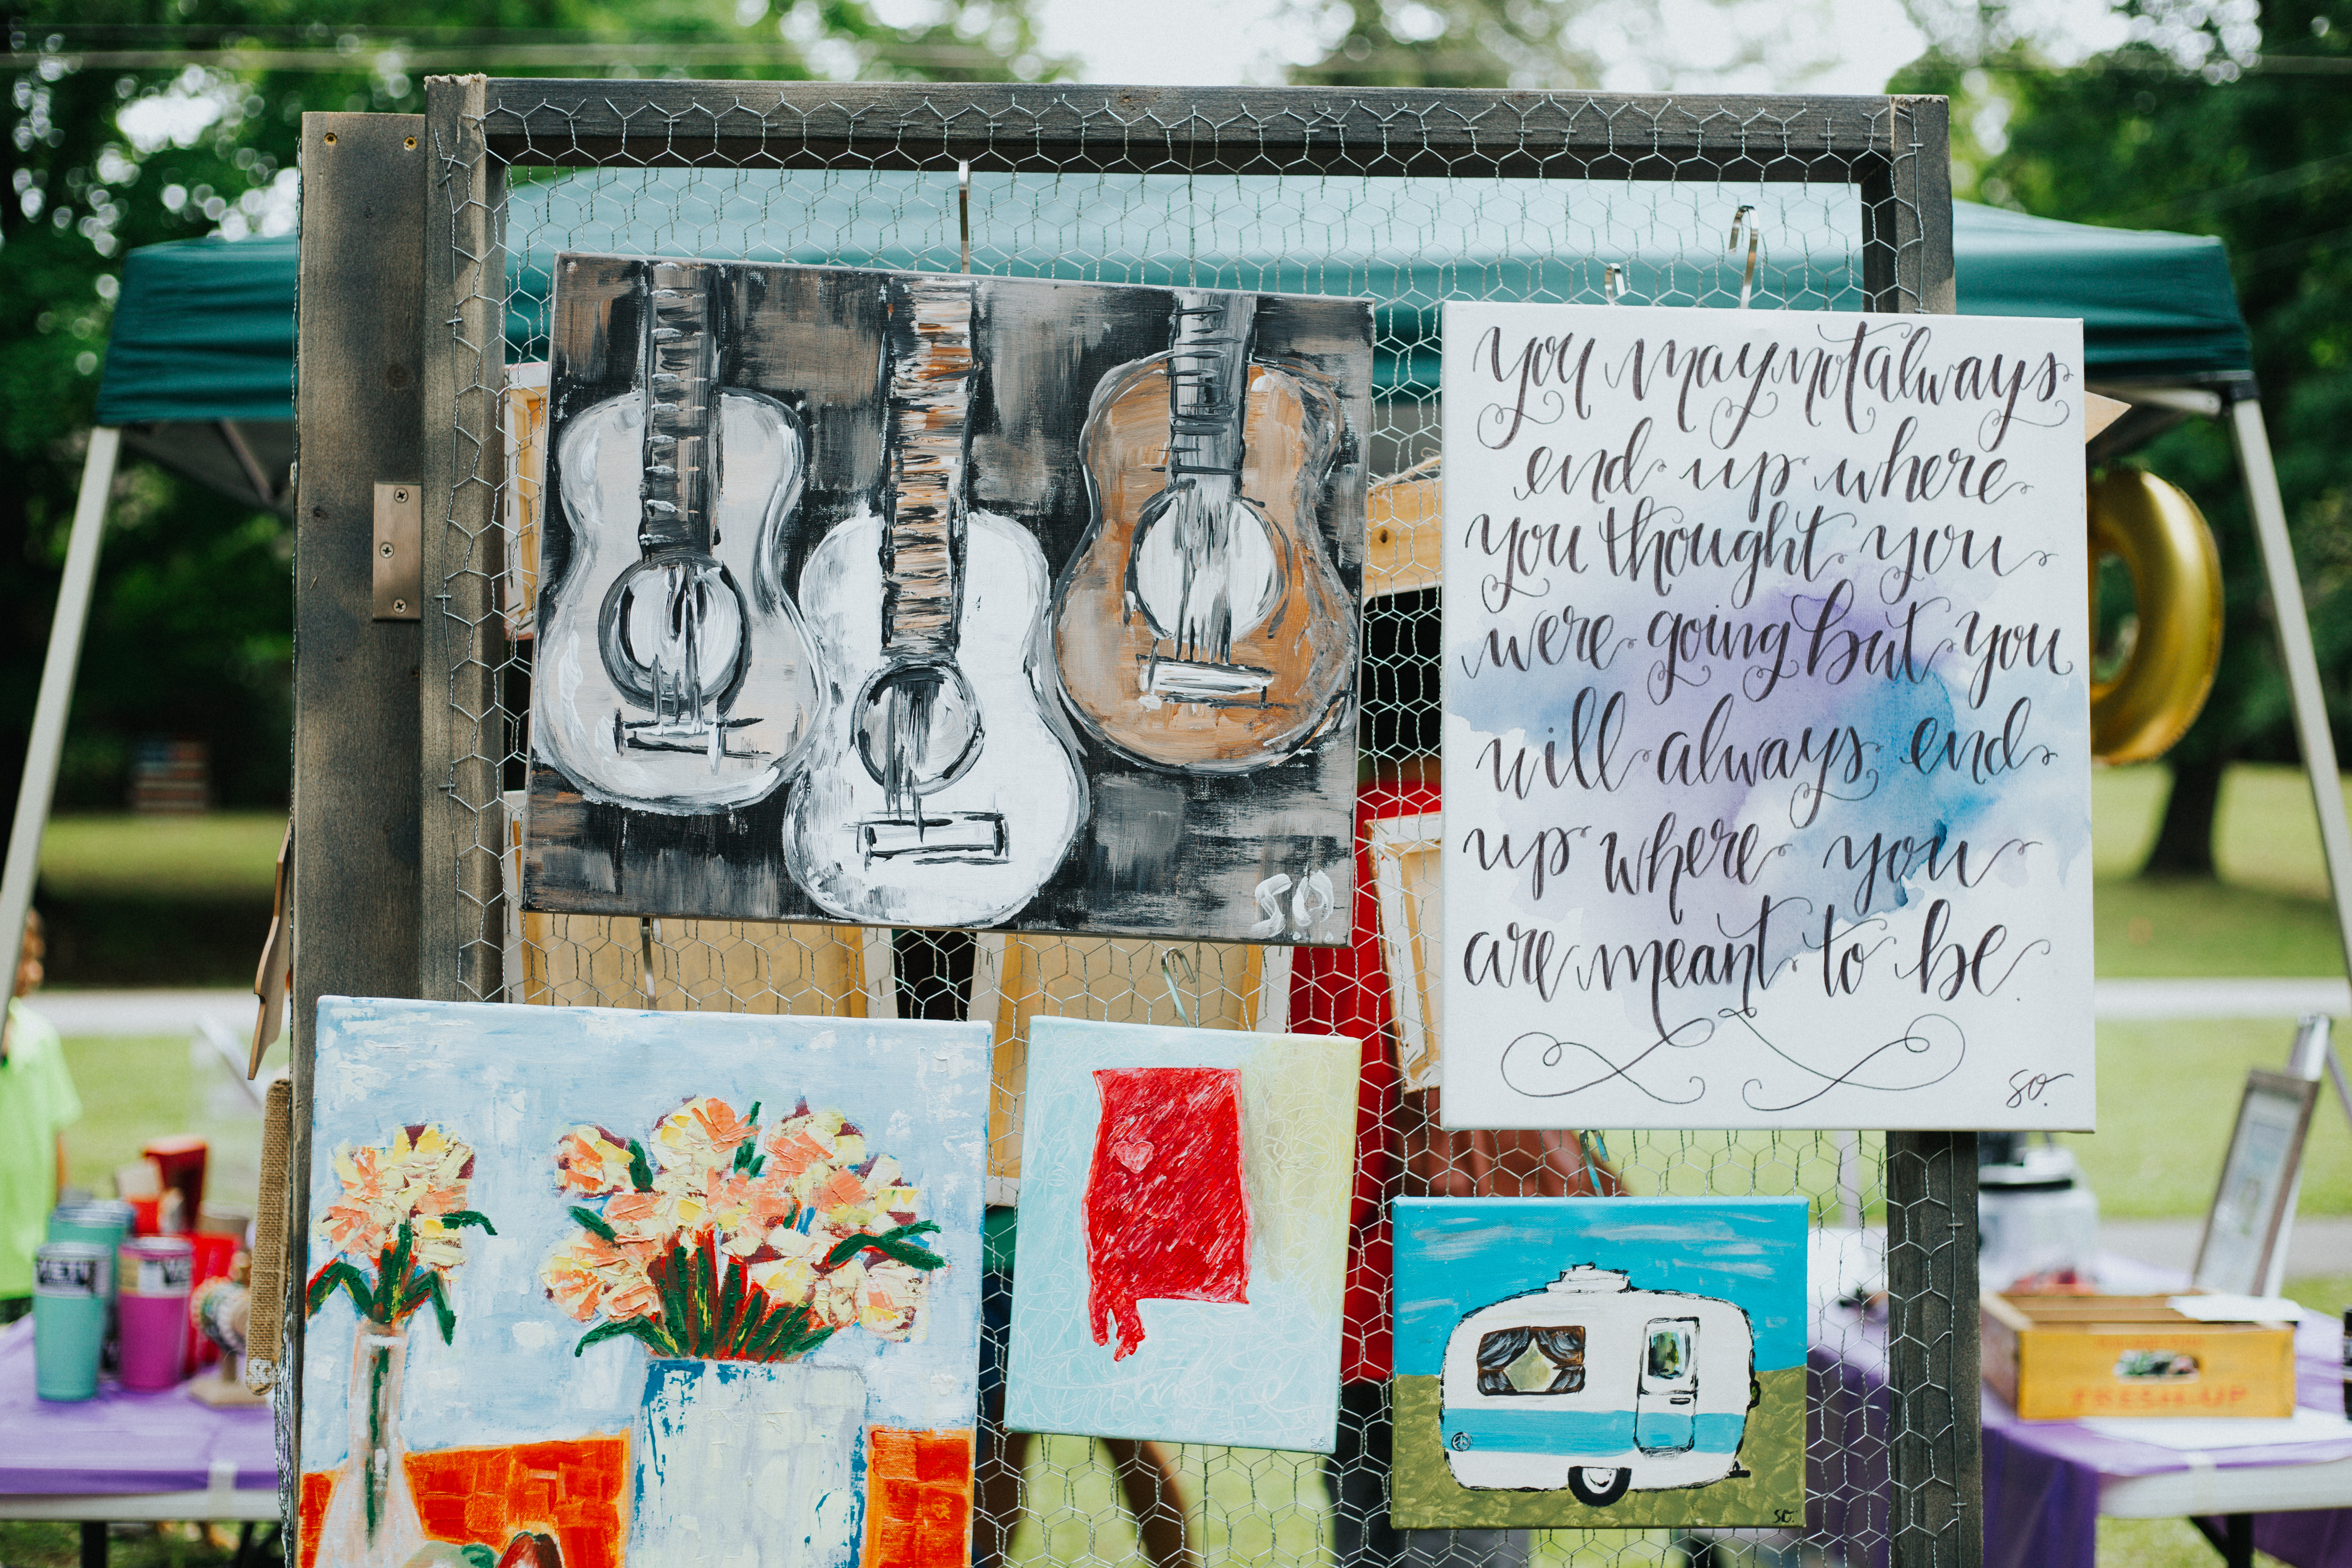 you may not always
end up where
you thought you
were going but you
will always end
up where you
are meant to be.
SO.
S.O.
SO.
SO.
YETI
FRESH-UP